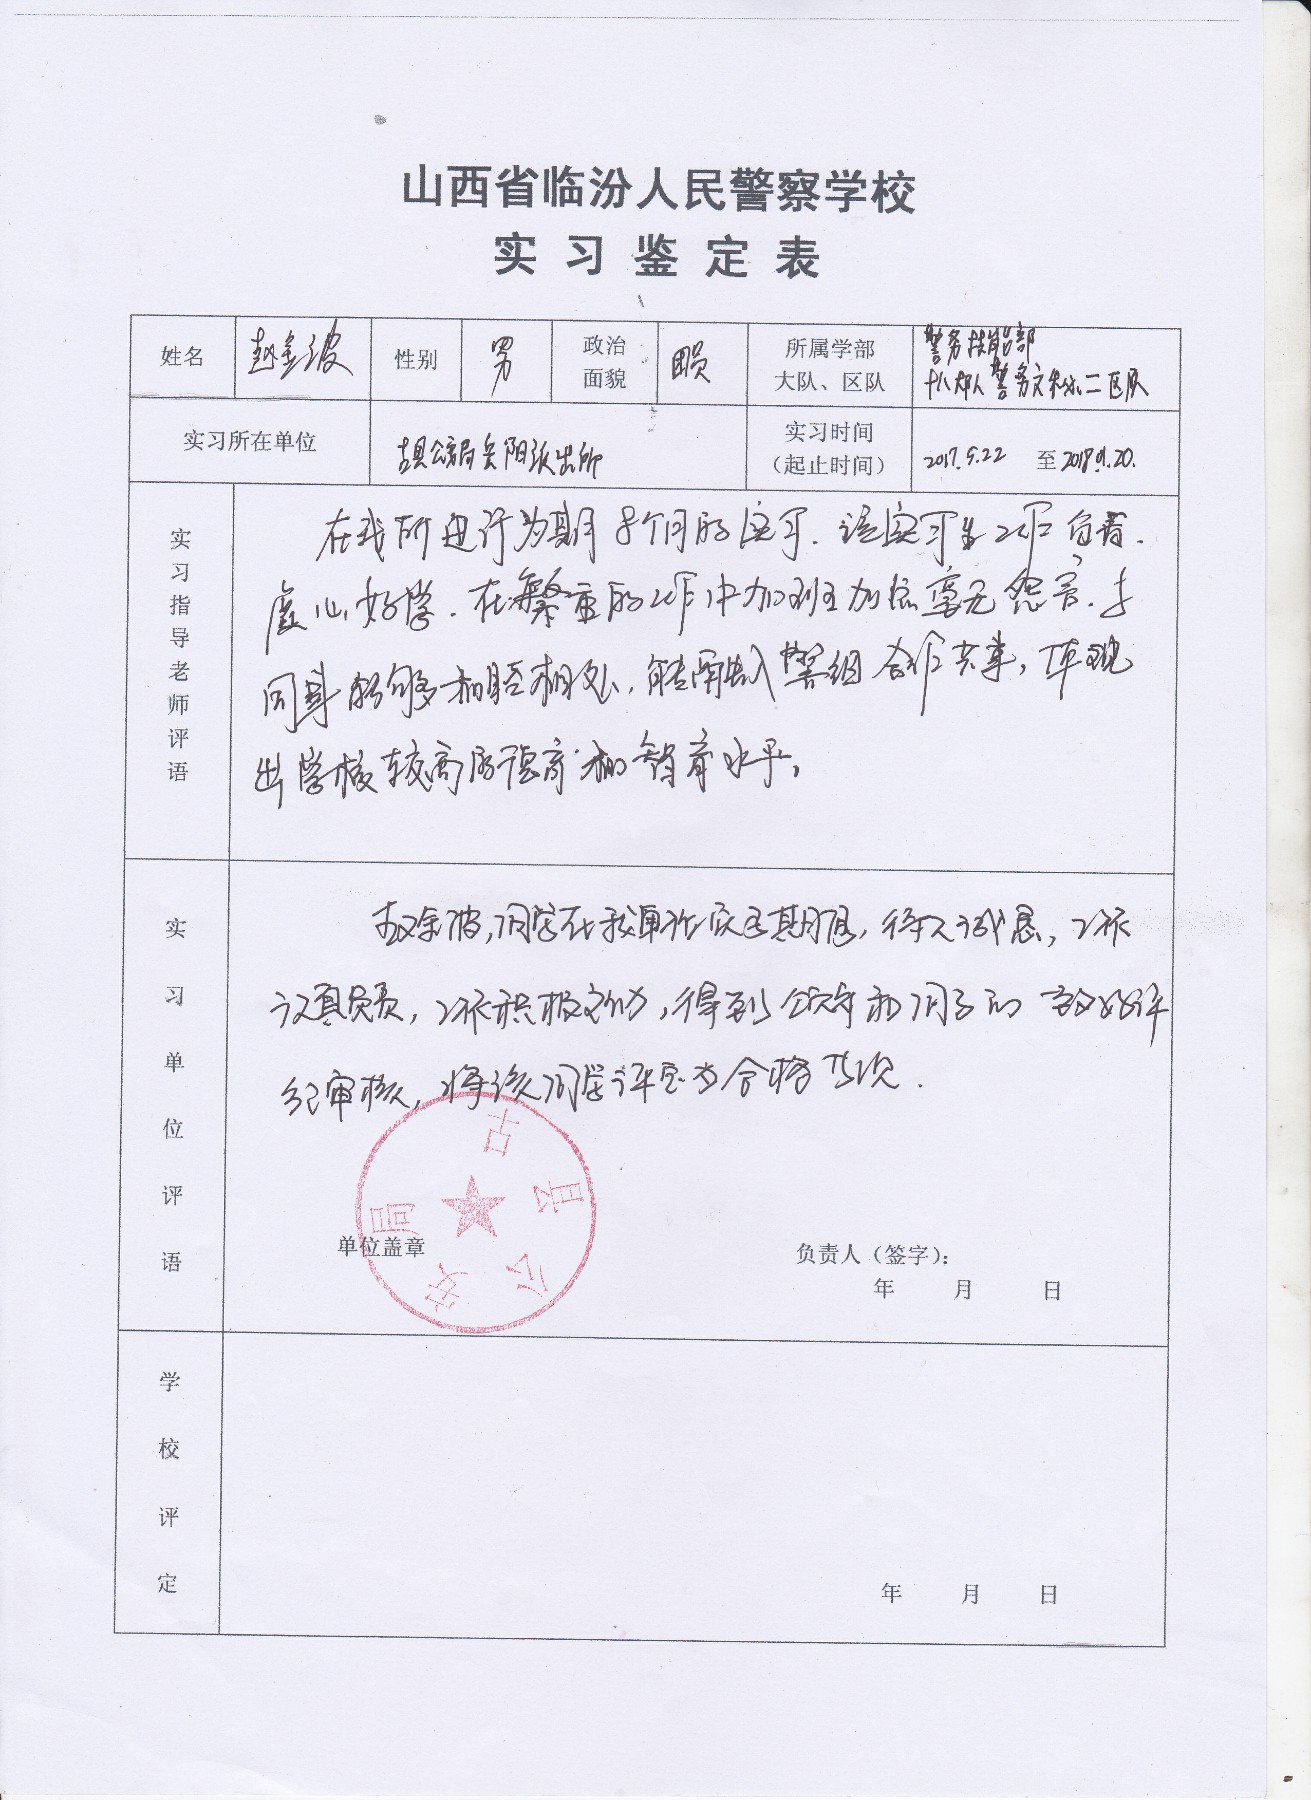 山西省临汾人民警察学校
实习鉴定表
姓名 赵金波 性别 男 政治面貌 团员 所属学部大队、区队 警务技能部
十八大队警务文秘二区队
实习所在单位 吉县公安局 派出所 实习时间(起止时间) 2017.5.22 至 2018.01.20.
实习指导老师评语
在我所进行为期8个月的实习.该实习生工作负责.
虚心好学.在繁重的工作中加班加点毫无怨言.与
同事能够和睦相处,能融入警组合作共事,体现
出学校较高的德育和智育水平。
实习单位评语
赵金波,同学在我单位实习期间,待人诚恳,工作
认真负责,工作积极主动,得到 和同事的 好评
经审核,将该同学评定为合格 次.
吉县公安局
单位盖章
负责人(签字):
年 月 日
学校评定
年 月 日